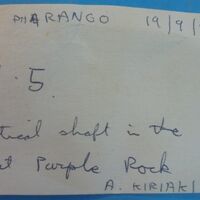 PHARANGO 19/9/
. 5
tical shaft in the
t Purple Rock
A. KIRIAKI